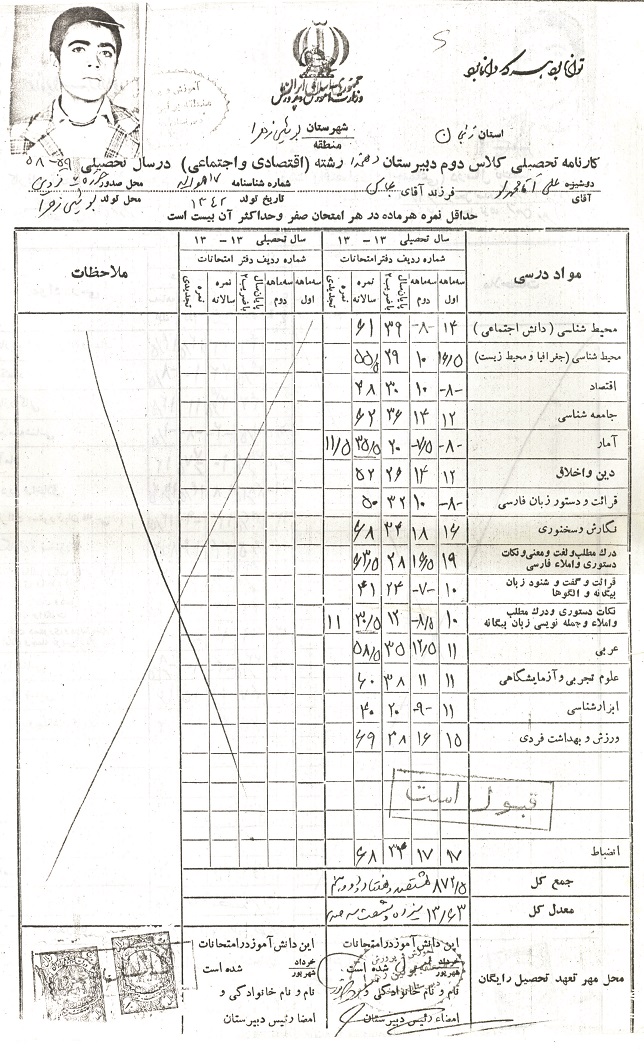 توانا بود هر که دانا بود
جمهوری اسلامی ایران
وزارت آموزش و پرورش
استان شهرستان بوئین زهرا
منطقه
کارنامه تحصیلی کلاس دوم دبیرستان دهخدا رشته (اقتصادی و اجتماعی) در سال تحصیلی ۵۹-۵۸
دوشیزه علی فرزند آقای عباس شماره شناسنامه ۱۷ محل صدور
آقای تاریخ تولد ۱۳۴۲ محل تولد بوئین زهرا
حداقل نمره هر ماده در هر امتحان صفر و حداکثر آن بیست است
مواد درسی سال تحصیلی ۱۳ - ۱۳ سال تحصیلی ۱۳ - ۱۳ ملاحظات
شماره ردیف دفتر امتحانات شماره ردیف دفتر امتحانات
سه ماهه اول سه ماهه دوم پایان سال با ضریب ۲ نمره سالانه نمره تجدیدی سه ماهه اول سه ماهه دوم پایان سال با ضریب ۲ نمره سالانه نمره تجدیدی
محیط شناسی (دانش اجتماعی) ۱۴ -۸- ۳۹ ۶۱
محیط شناسی (جغرافیا و محیط زیست) ۱۶/۵ ۱۰ ۲۹ ۵۵/۵
اقتصاد -۸- ۱۰ ۳۰ ۴۸
جامعه شناسی ۱۲ ۱۴ ۳۶ ۶۲
آمار -۸- -۷/۵ ۲۰ ۳۵/۵ ۱۱/۵
دین و اخلاق ۱۲ ۱۴ ۲۶ ۵۲
قرائت و دستور زبان فارسی -۸- ۱۰ ۳۲ ۵۰
نگارش و سخنوری ۱۶ ۱۸ ۳۴ ۶۸
درک مطلب و لغت و معنی و نکات دستوری و املاء فارسی ۱۹ ۱۶/۵ ۲۸ ۶۳/۵
قرائت و گفت و شنود زبان بیگانه و الگوها ۱۰ -۷- ۲۴ ۴۱
نکات دستوری و درک مطلب و املاء و جمله نویسی زبان بیگانه ۱۰ -۸/۵ ۱۲ ۳۰/۵ ۱۱
عربی ۱۱ ۱۲/۵ ۳۵ ۵۸/۵
علوم تجربی و آزمایشگاهی ۱۱ ۱۱ ۳۸ ۶۰
ابزارشناسی ۱۱ -۹- ۲۰ ۴۰
ورزش و بهداشت فردی ۱۵ ۱۶ ۳۸ ۶۹
قبول است
انضباط ۱۷ ۱۷ ۳۴ ۶۸
جمع کل ۸۷۲/۵ هشتصد و هفتاد و دو و نیم
معدل کل ۱۳/۶۳ سیزده و شصت و سه صدم
محل مهر تعهد تحصیل رایگان
این دانش آموز در امتحانات این دانش آموز در امتحانات
خرداد قبول شده است خرداد شده است
شهریور شهریور
نام و نام خانوادگی و نام و نام خانوادگی و
امضاء رئیس دبیرستان امضا رئیس دبیرستان